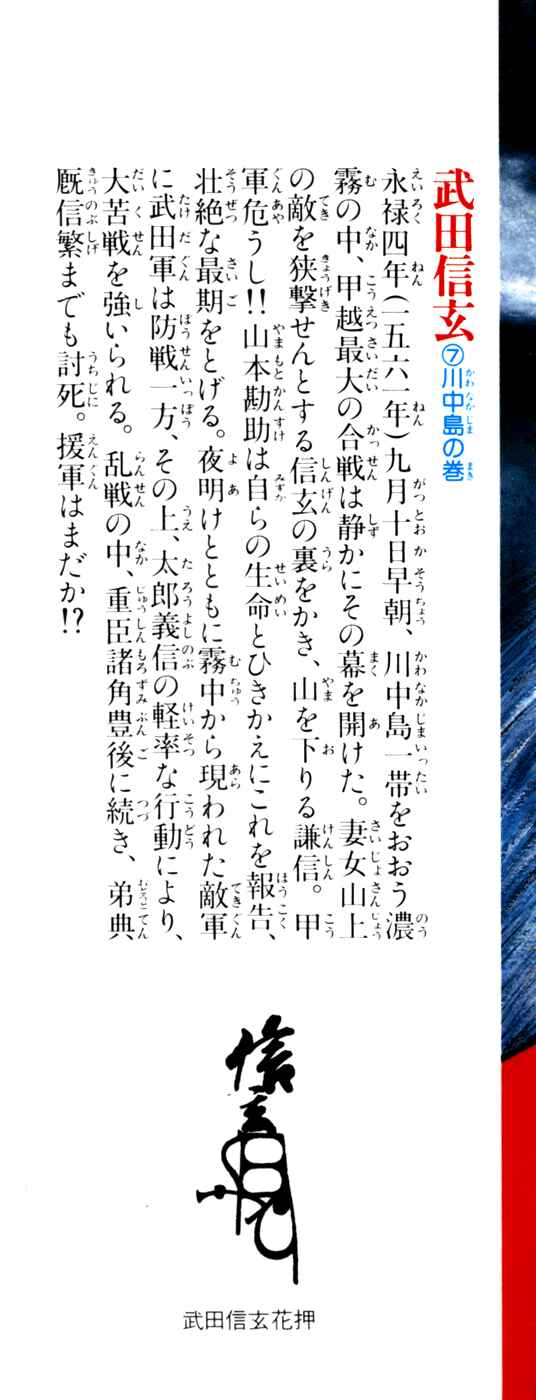 武田信玄⑦川中島の巻
永禄四年(一五六一年)九月十日早朝、川中島一帯をおおう濃
霧の中、甲越最大の合戦は静かにその幕を開けた。妻女山上
の敵を狭撃せんとする信玄の裏をかき、山を下りる謙信。甲
軍危うし!!山本勘助は自らの生命とひきかえにこれを報告、
壮絶な最期をとげる。夜明けとともに霧中から現われた敵軍
に武田軍は防戦一方、その上、太郎義信の軽率な行動により、
大苦戦を強いられる。乱戦の中、重臣諸角豊後に続き、弟典
厩信繁までも討死。援軍はまだか!?
信玄
武田信玄花押